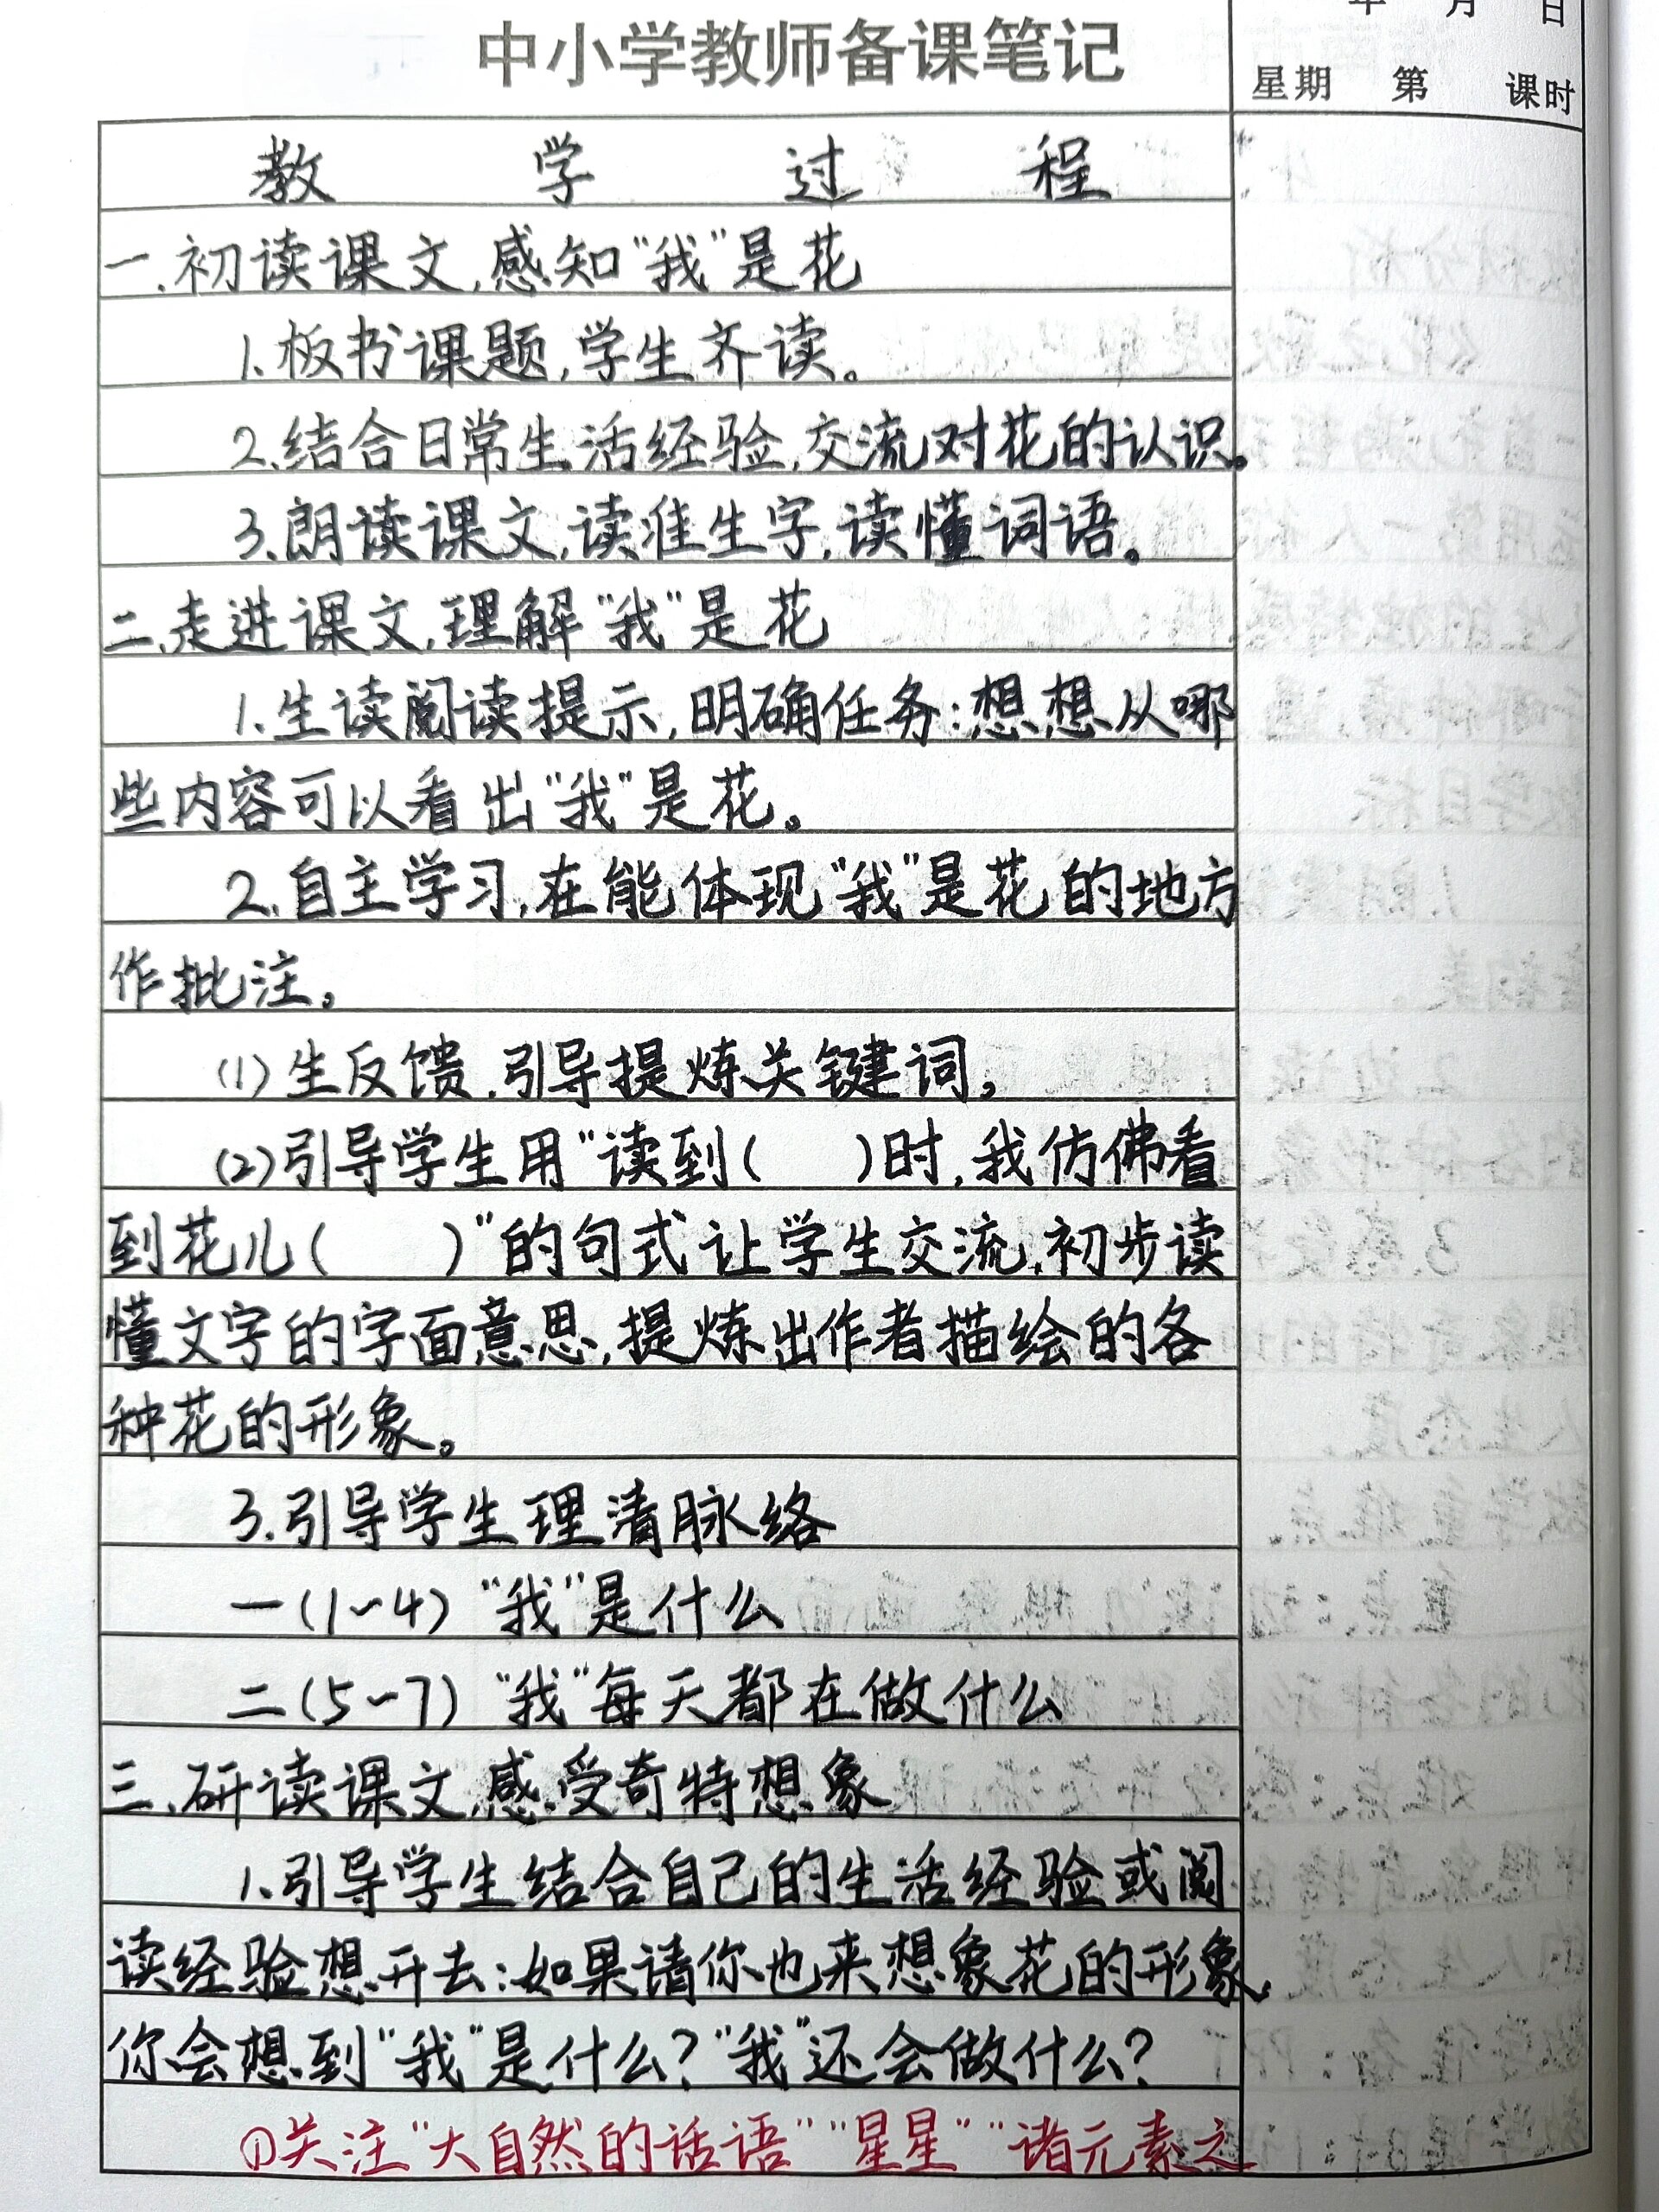 年 月 日
中小学教师备课笔记
星期 第 课时
教 学 过 程
一.初读课文,感知"我"是花
1.板书课题,学生齐读。
2.结合日常生活经验,交流对花的认识。
3.朗读课文,读准生字,读懂词语。
二.走进课文,理解"我"是花
1.生读阅读提示,明确任务:想想从哪
些内容可以看出"我"是花。
2.自主学习,在能体现"我"是花的地方
作批注。
(1)生反馈,引导提炼关键词。
(2)引导学生用"读到( )时,我仿佛看
到花儿( )"的句式让学生交流,初步读
懂文字的字面意思,提炼出作者描绘的各
种花的形象。
3.引导学生理清脉络
一(1~4) "我"是什么
二(5~7) "我"每天都在做什么
三.研读课文,感受奇特想象
1.引导学生结合自己的生活经验或阅
读经验想开去:如果请你也来想象花的形象,
你会想到"我"是什么?"我"还会做什么?
①关注"大自然的话语""星星""诸元素之